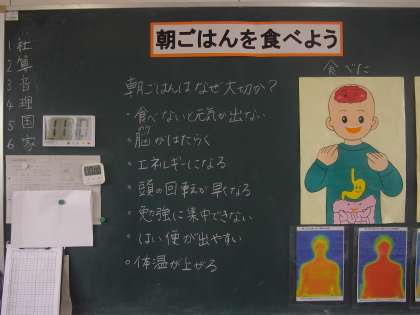 朝ごはんを食べよう
1 社
2 算
3 音
4 理
5 国
6 家
食べた
朝ごはんはなぜ大切か?
・食べないと元気が出ない
・脳がはたらく
・エネルギーになる
・頭の回転が早くなる
・勉強に集中できない
・はい便が出やすい
・体温が上がる